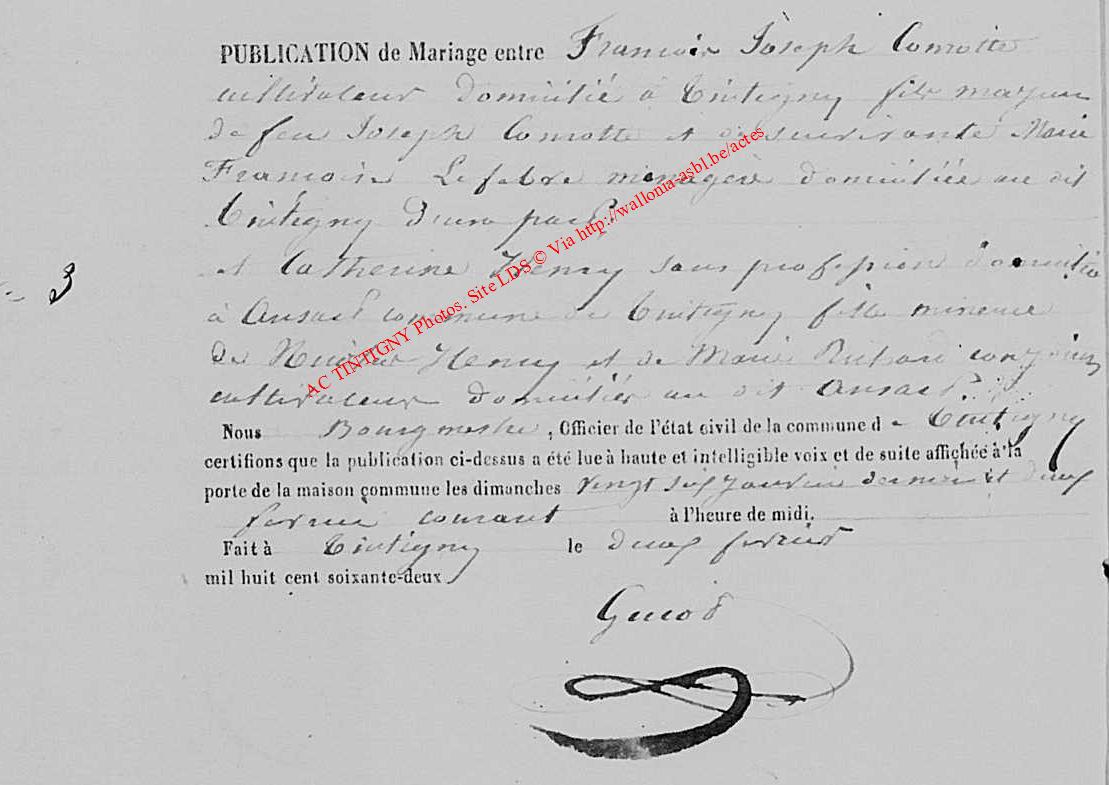 PUBLICATION de Mariage entre François Joseph Comotte
cultivateur domicilié à Tintigny fils majeur
de feu Joseph Comotte et de survivante Marie
Françoise Lefebre ménagère domiciliée au dit
Tintigny d'une part
et Catherine Henry sans profession domiciliée
3
à Ansart commune de Tintigny fille mineure
de Henry et de Marie conjoints
cultivateurs domiciliés au dit Ansart
Nous Bourgmestre, Officier de l'état civil de la commune de Tintigny
certifions que la publication ci-dessus a été lue à haute et intelligible voix et de suite affichée à la
porte de la maison commune les dimanches vingt six Janvier dernier et deux
fevrier courant à l'heure de midi.
Fait à Tintigny le deux fevrier
mil huit cent soixante-deux
AC TINTIGNY Photos. Site LDS © Via http://wallonia-asbl.be/actes